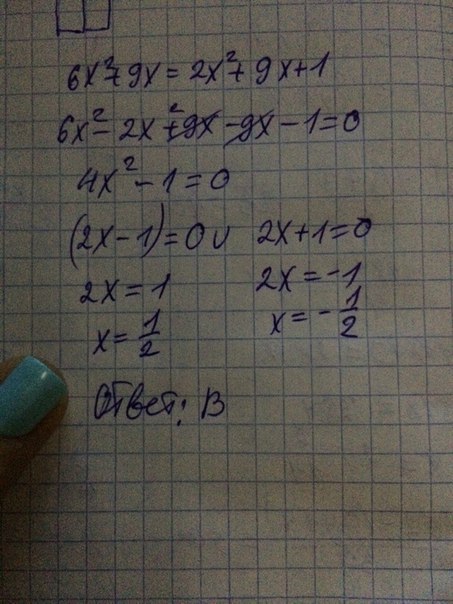 6x²+9x = 2x²+9x+1
6x²-2x²+9x-9x-1=0
4x²-1=0
(2x-1)=0 ∪ 2x+1=0
2x=1 2x=-1
x=1/2 x=-1/2
Ответ: В